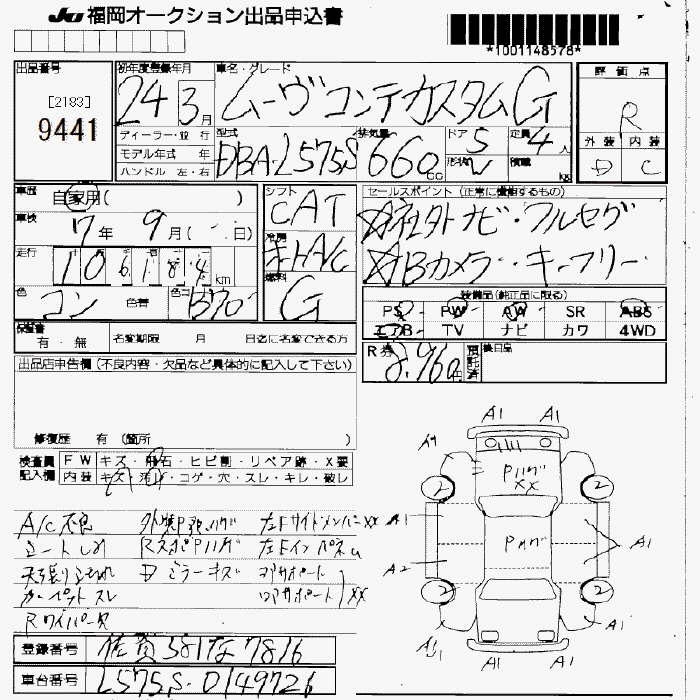 JU 福岡オークション出品申込書
*1001148578*
出品番号
[2183]
9441
初年度登録年月
24 3月
車名・グレード
ムーヴコンテカスタムG
評価点
R
外装 内装
D C
ディーラー・並行
モデル年式 年
ハンドル 左・右
型式
DBA-L575S
排気量
660cc
ドア
5
定員
4人
形状
V
積載
kg
車歴
自家用( )
車検
7年 9月( ・ 日)
走行
106184km
色
コン
色替
色コード
B70
シフト
CAT
冷房
燃料
G
セールスポイント (正常に機能するもの)
☆社外ナビ・フルセグ
☆Bカメラ・キーフリー
装備品(純正品に限る)
PS PW AW SR ABS
エアB TV ナビ カワ 4WD
保証書
有・無
名変期限 月 日迄に名変できる方
R券
8,960円
預託済
後日品
出品店申告欄(不良内容・欠品など具体的に記入して下さい)
修復歴 有 (箇所 )
検査員記入欄
FW キズ・飛石・ヒビ割・リペア跡・X要
内装 キズ・汚れ・コゲ・穴・スレ・キレ・破レ
A/C不良 左Fサイドメンバーxx
シートしみ 左Fインパネル
天張り
カーペットスレ
Rワイパー欠
ミラーキズ
コアサポート
xx
A1 A1
A1
Pハゲ
xx
2 2
A1
Pハゲ
A1
A2
2 2
A1 A1
A1 A1
登録番号
佐賀581な7816
車台番号
L575S-0149726